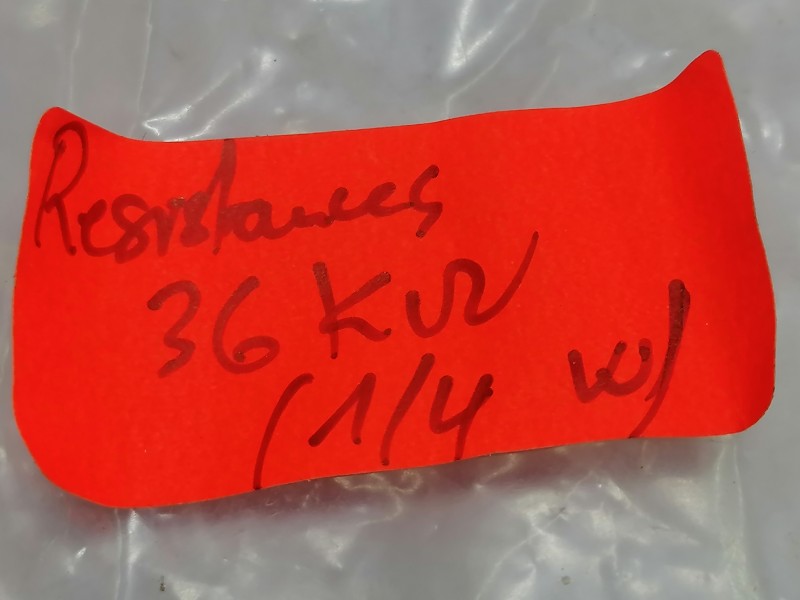 Resistances
36 KΩ
(1/4 W)